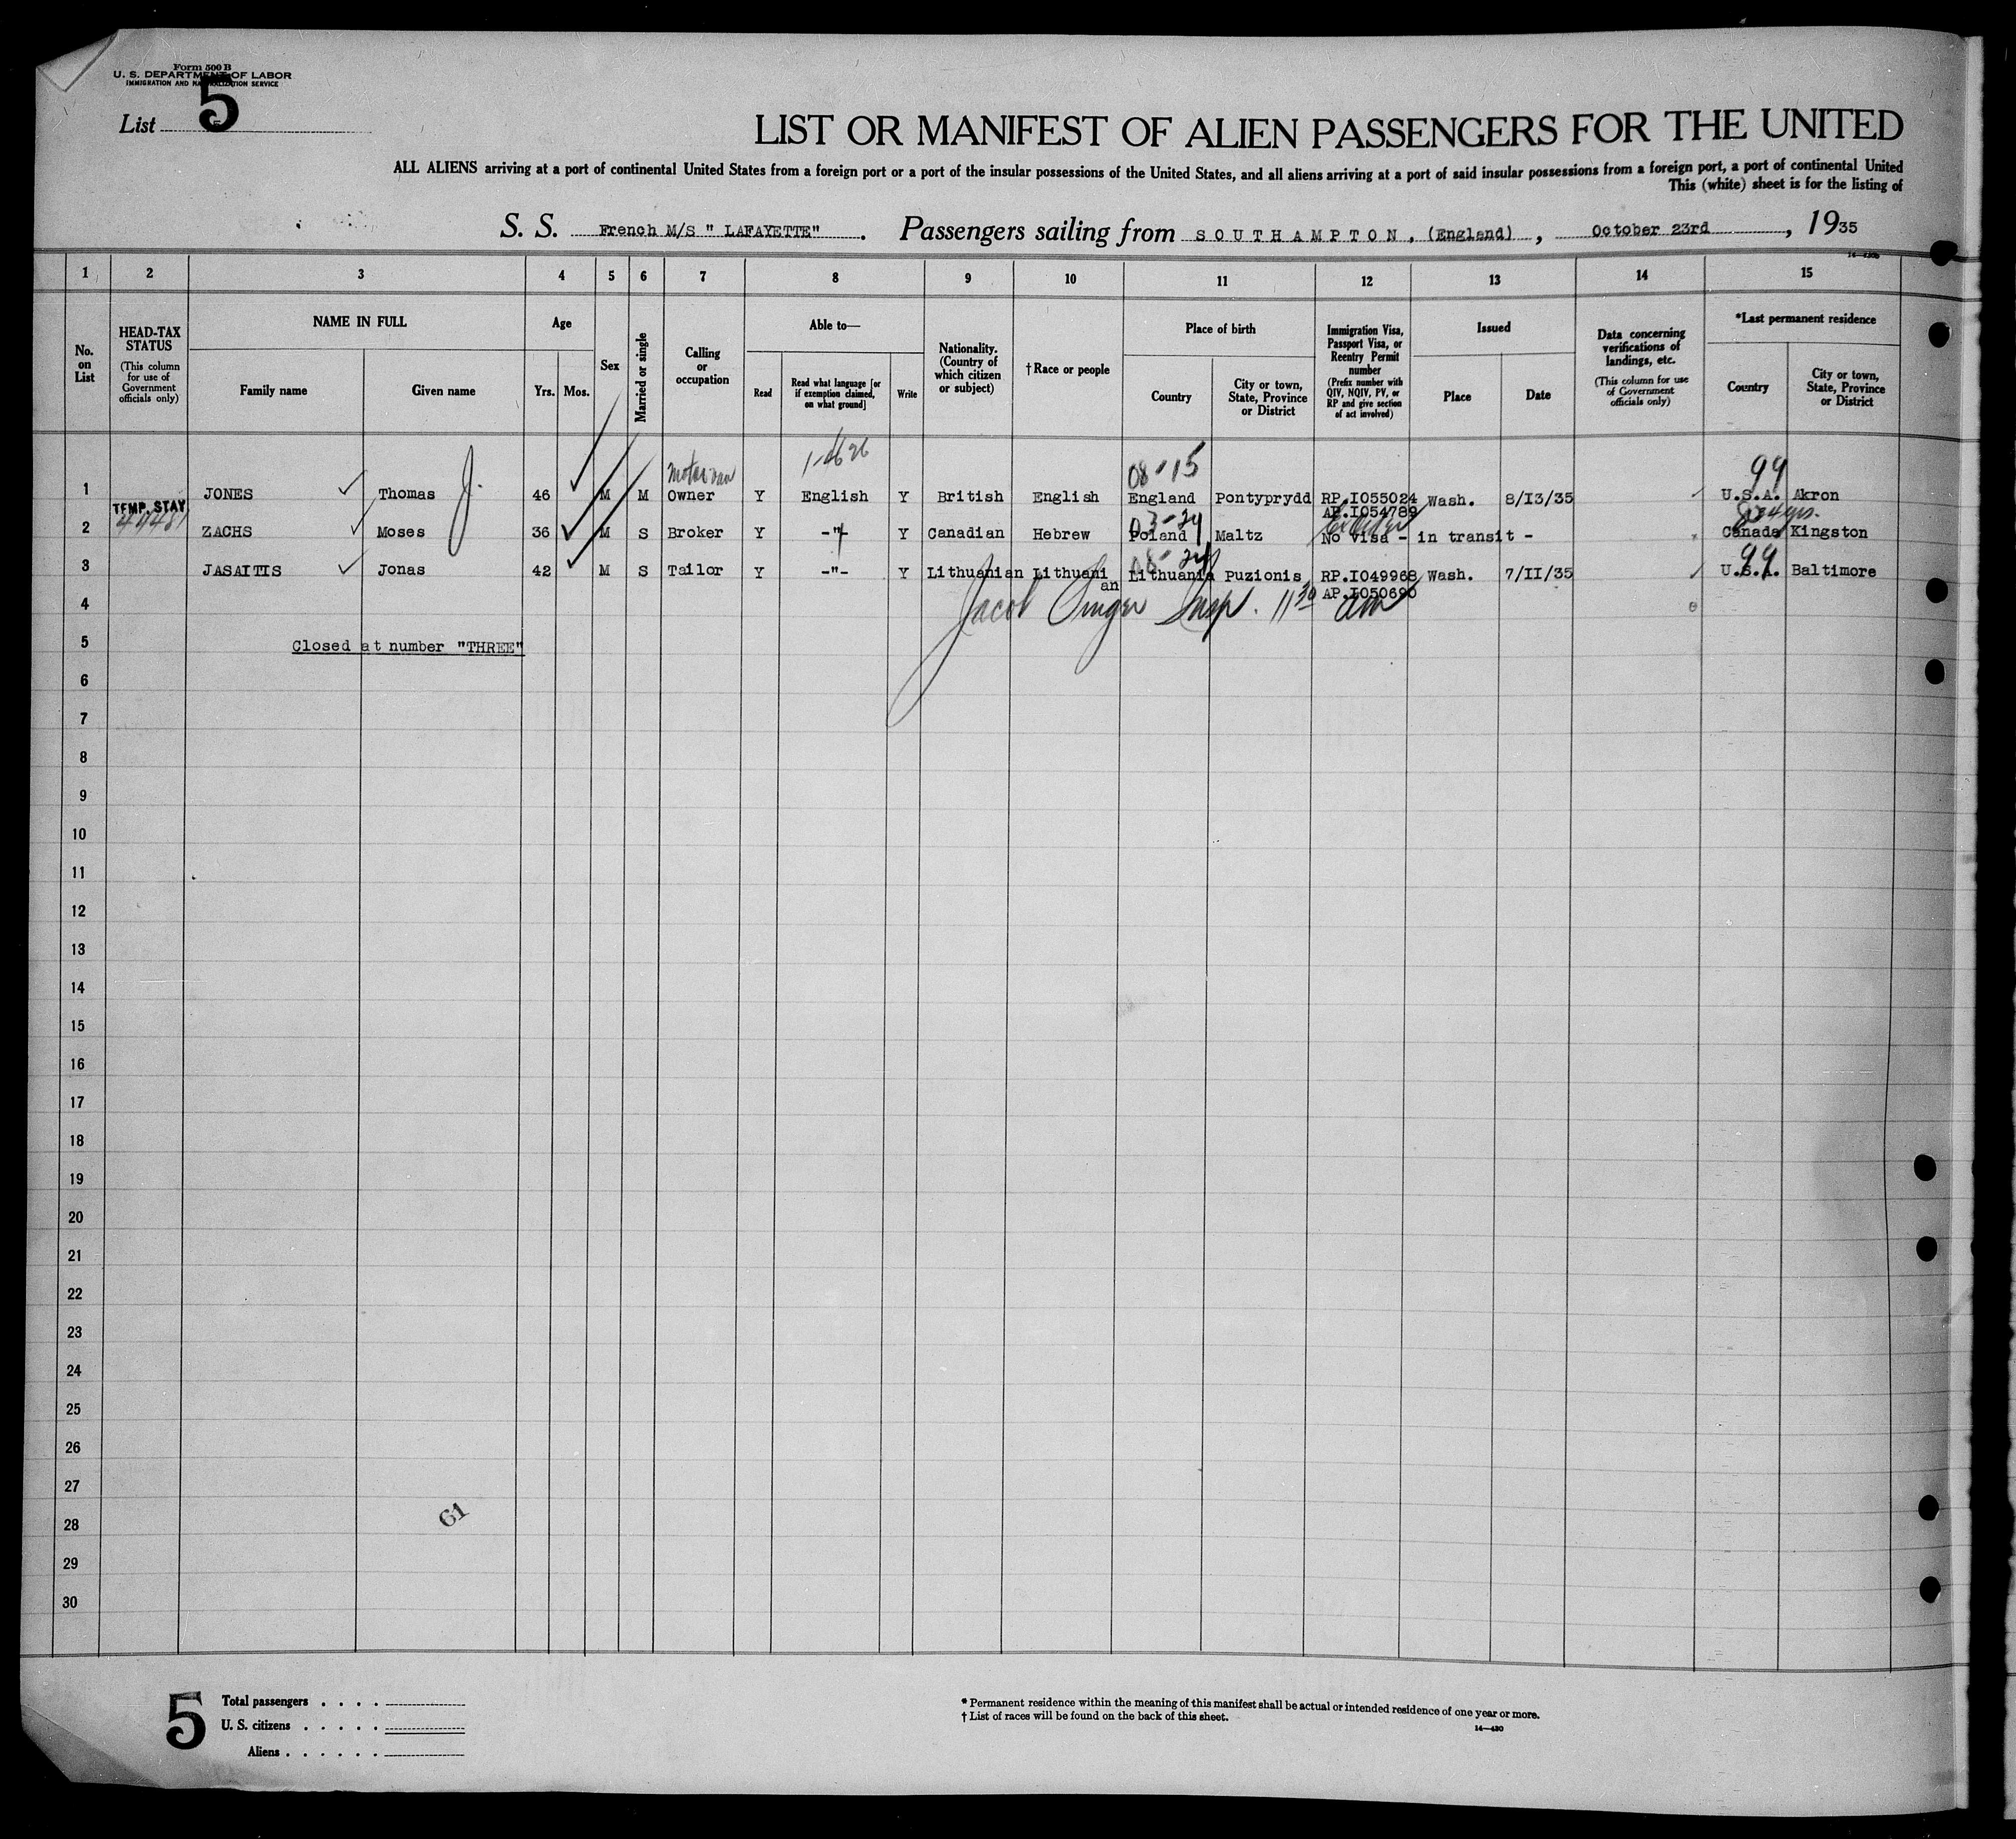 Form 500 B
U. S. DEPARTMENT OF LABOR
IMMIGRATION AND NATURALIZATION SERVICE
List 5
LIST OR MANIFEST OF ALIEN PASSENGERS FOR THE UNITED
ALL ALIENS arriving at a port of continental United States from a foreign port or a port of the insular possessions of the United States, and all aliens arriving at a port of said insular possessions from a foreign port, a port of continental United
This (white) sheet is for the listing of
S. S. French M/S " LAFAYETTE" . Passengers sailing from SOUTHAMPTON, (England) , October 23rd , 1935
1 2 3 4 5 6 7 8 9 10 11 12 13 14 15
No. on List
HEAD-TAX STATUS (This column for use of Government officials only)
NAME IN FULL
Family name Given name
Age
Yrs. Mos.
Sex
Married or single
Calling or occupation
Able to—
Read Read what language [or if exemption claimed, on what ground] Write
Nationality. (Country of which citizen or subject)
†Race or people
Place of birth
Country City or town, State, Province or District
Immigration Visa, Passport Visa, or Reentry Permit number (Prefix number with QIV, NQIV, PV, or RP and give section of act involved)
Issued
Place Date
Data concerning verifications of landings, etc. (This column for use of Government officials only)
*Last permanent residence
Country City or town, State, Province or District
08-15 99
1 JONES Thomas J. 46 M M Owner Y English Y British English England Pontyprydd RP.I055024 Wash. 8/I3/35 U.S.A. Akron
AP.I054789
TEMP. STAY
03-24
2 ZACHS Moses 36 M S Broker Y -"- Y Canadian Hebrew Poland Maltz No visa - in transit - Canada Kingston
08-24 99
3 JASAITIS Jonas 42 M S Tailor Y -"- Y Lithuanian Lithuani an Lithuania Puzionis RP.I049968 Wash. 7/II/35 U.S.A. Baltimore
AP.I050690
4 Jacob Singer Insp. 11 30 am
5 Closed at number "THREE"
6
7
8
9
10
11
12
13
14
15
16
17
18
19
20
21
22
23
24
25
26
27
28
29
30
61
5
Total passengers . . . .
U. S. citizens . . . . .
Aliens . . . . . .
* Permanent residence within the meaning of this manifest shall be actual or intended residence of one year or more.
† List of races will be found on the back of this sheet.
14—430